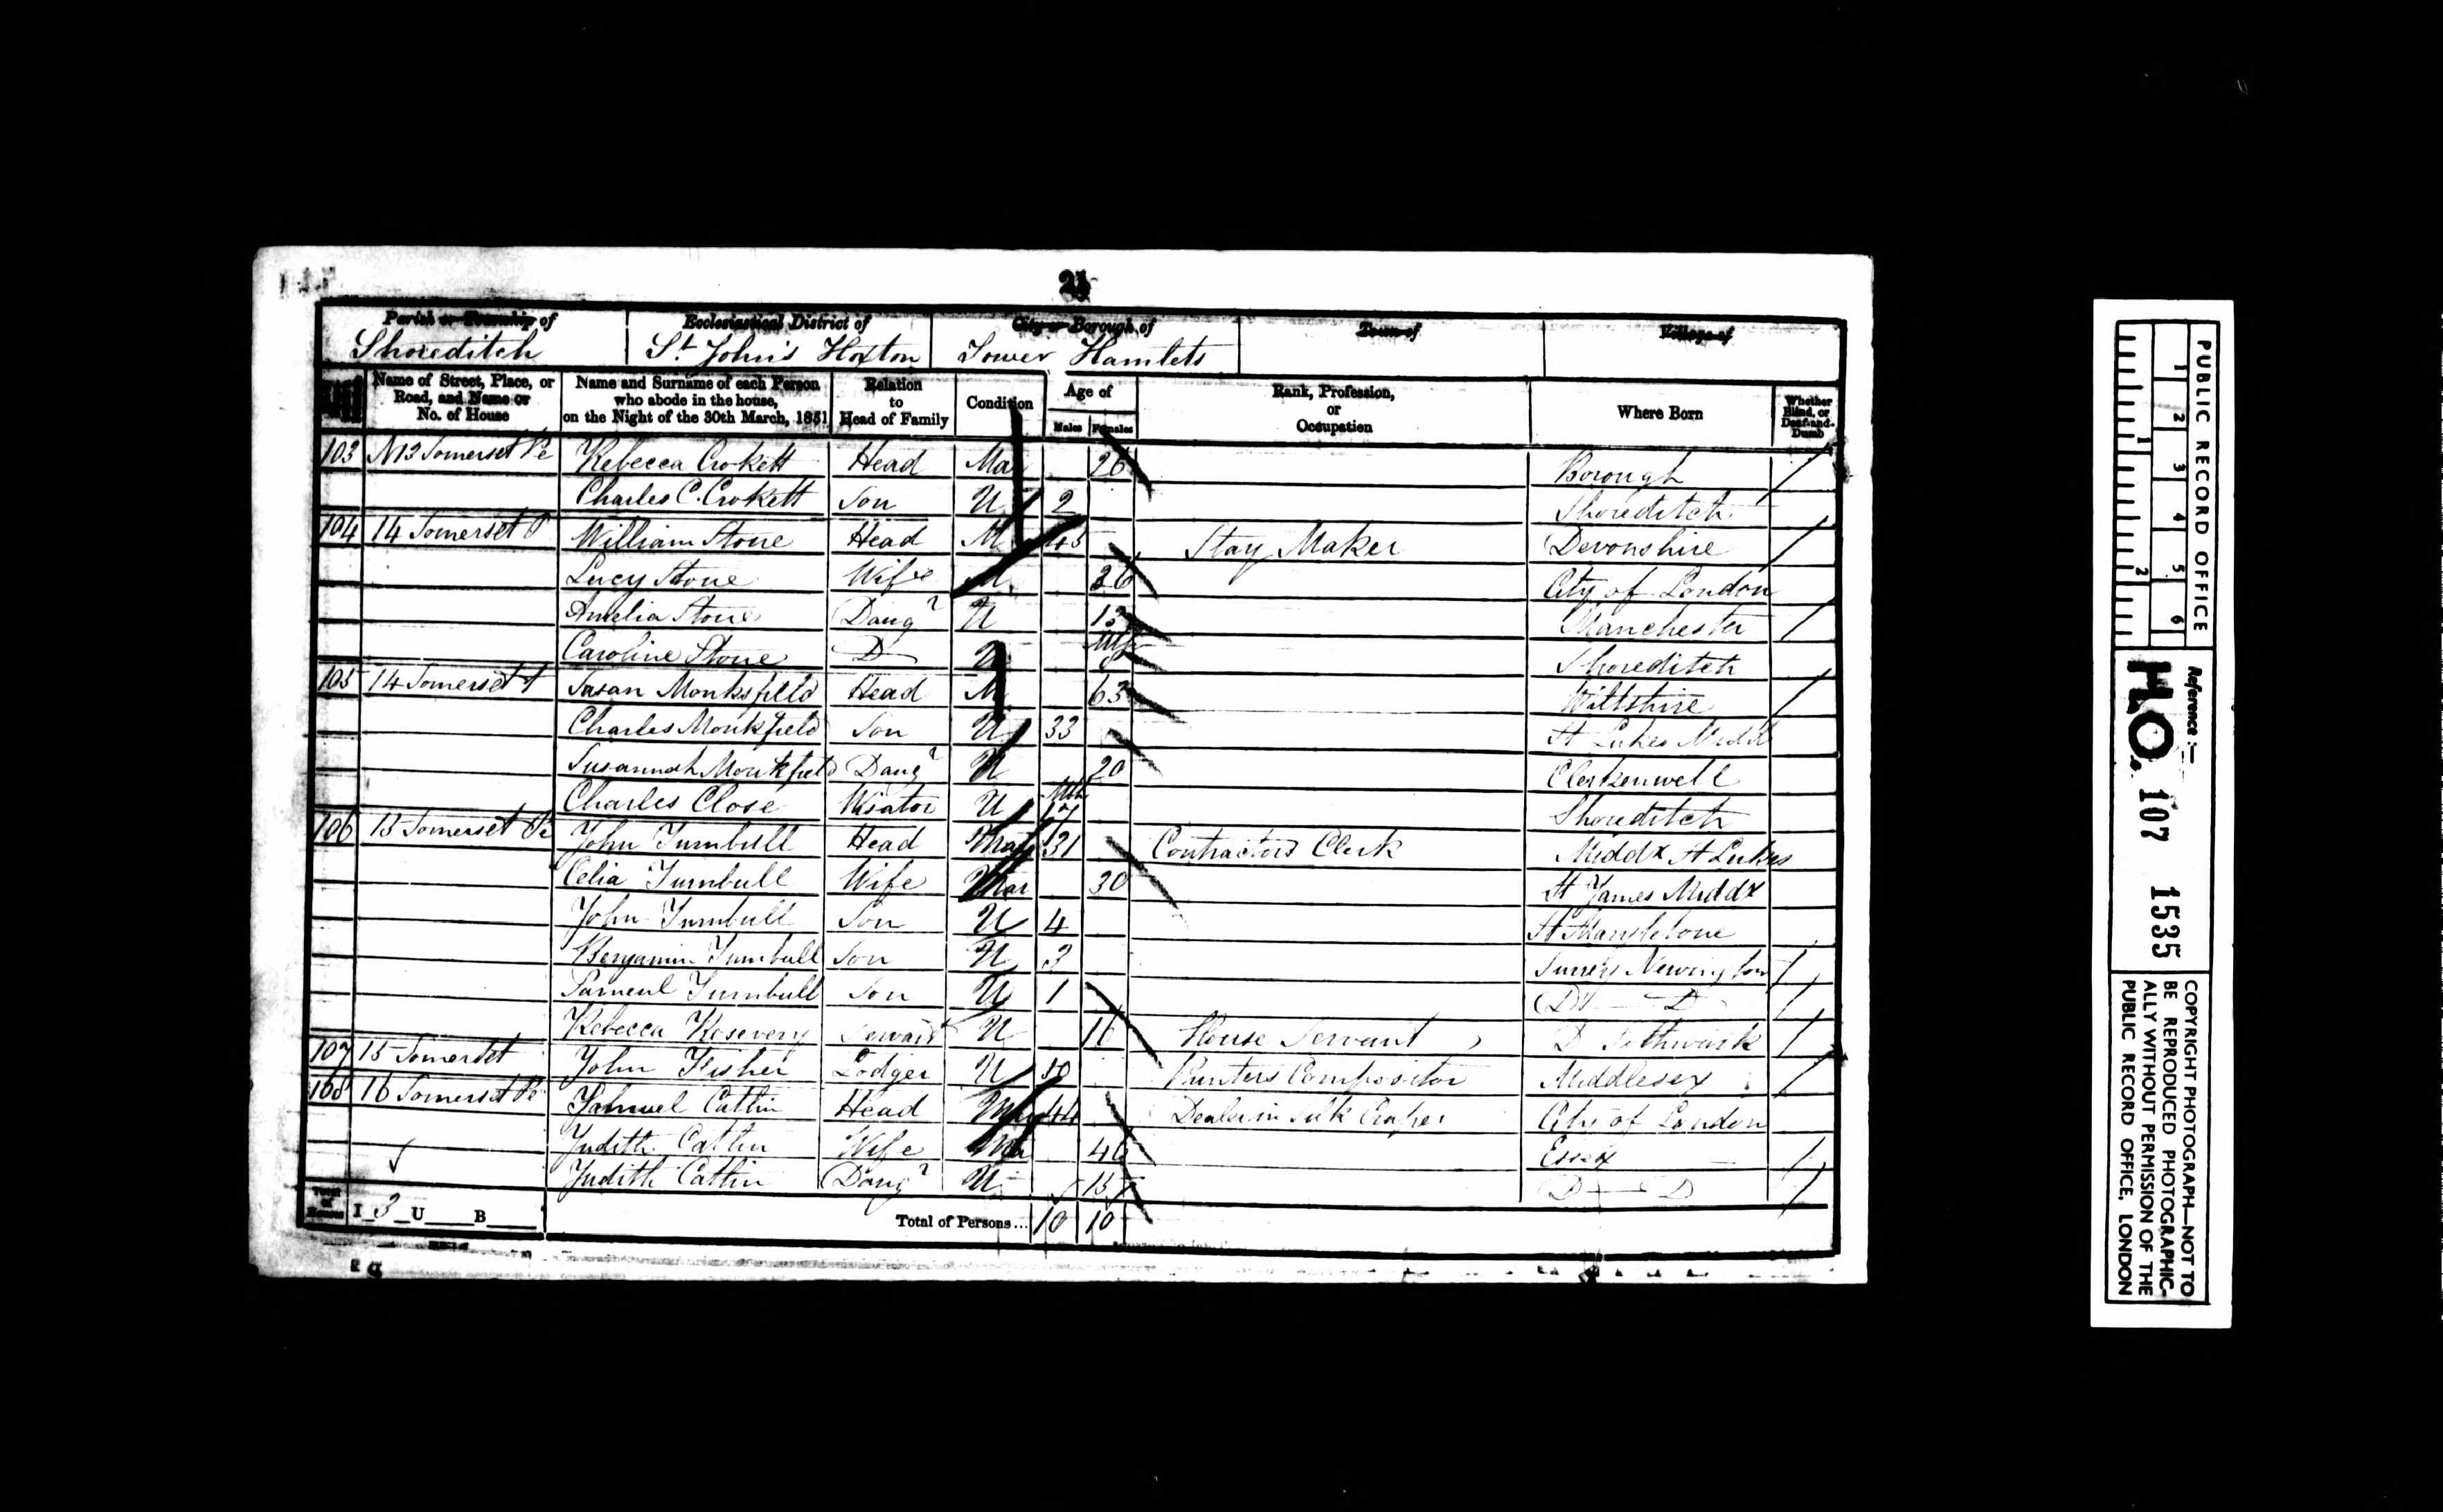 Parish or Township of
Shoreditch
Ecclesiastical District of
St. John's Hoxton
City or Borough of
Tower Hamlets
Town of
Village of
Name of Street, Place, or Road, and Name or No. of House
Name and Surname of each Person who abode in the house, on the Night of the 30th March, 1851
Relation to Head of Family
Condition
Age of
Males Females
Rank, Profession, or Occupation
Where Born
Whether Blind, or Deaf-and-Dumb
103 N13 Somerset Pe Rebecca Crokett Head Mar 26 Borough
Charles C. Crokett Son U 2 Shoreditch
104 14 Somerset P William Stone Head M 45 Stay Maker Devonshire
Lucy Stone Wife M 36 City of London
Amelia Stone Daugr U 13 Manchester
Caroline Stone D U Shoreditch
105 14 Somerset Susan Monksfield Head M 63 Wiltshire
Charles Monkfield Son U 33 St Lukes Midd
Susannah Monkfield Daugr U 20 Clerkenwell
Charles Close Visator U Mth Shoreditch
106 15 Somerset Pe John Turnbull Head Mar 31 Contractors Clerk Middx St Lukes
Celia Turnbull Wife Mar 30 St James Middx
John Turnbull Son U 4 St Marylebone
Benjamin Turnbull Son U 3 Surrey Newington
Sameul Turnbull Son U 1 Do D
Rebecca Servant U 16 House Servant D Sothwark
107 15 Somerset John Fisher Lodger U Printers Compositor Middlesex
108 16 Somerset Pe Samuel Catlin Head Mar 44 Dealer in Silk City of London
Judith Catlin Wife Mar 46 Essex
Judith Catlin Daugr U 15 D D
Total of Houses I 3 U B Total of Persons... 10 10
PUBLIC RECORD OFFICE
1 2 3 4 5 6
1 2
Reference :—
H.O. 107 1535
COPYRIGHT PHOTOGRAPH—NOT TO
BE REPRODUCED PHOTOGRAPHIC-
ALLY WITHOUT PERMISSION OF THE
PUBLIC RECORD OFFICE, LONDON